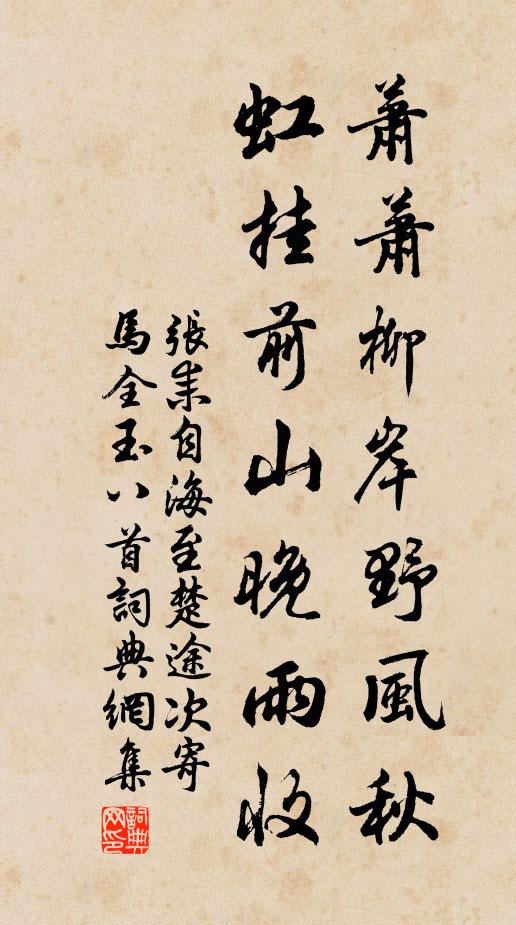 蕭蕭柳岸野風秋
虹挂前山晚雨收
張耒自海至楚途次寄
馬全玉八首詞典網集
詞典
网印